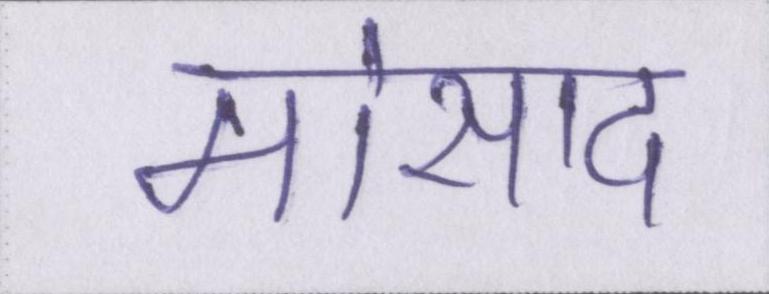 मांसाद